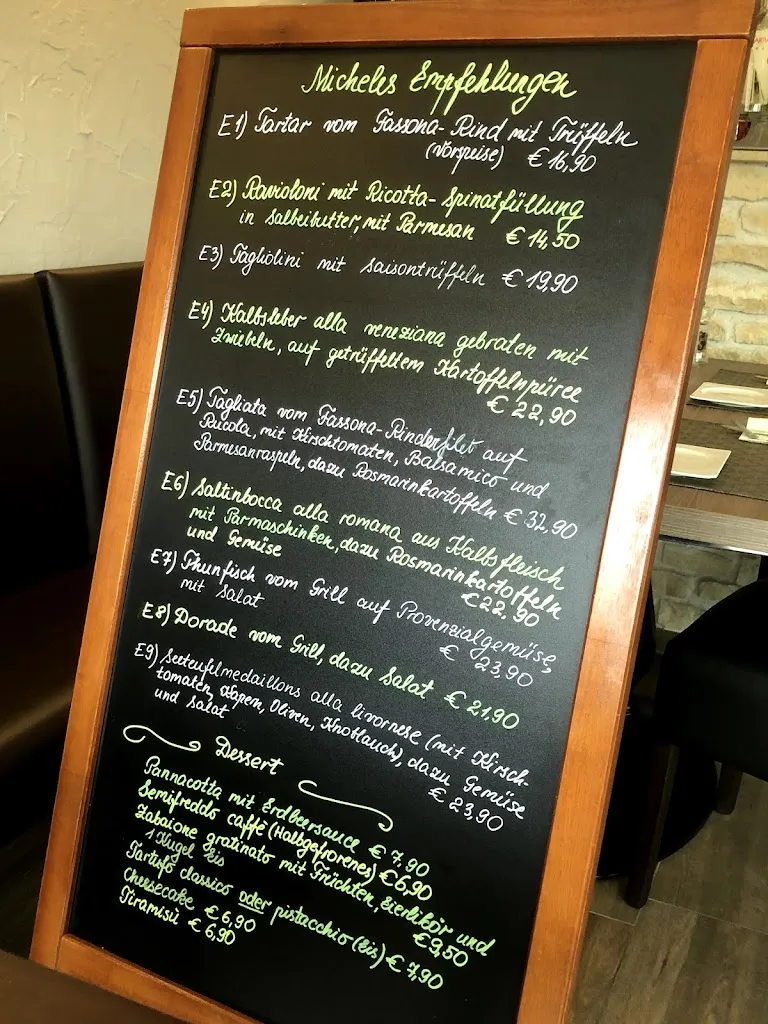 Micheles Empfehlungen
E1) Tartar vom Fassona-Rind mit Trüffeln
(Vorspeise) € 16,90
E2) Ravioloni mit Ricotta-Spinatfüllung
in Salbeibutter, mit Parmesan € 14,50
E3) Tagliolini mit Saisontrüffeln € 19,90
E4) Kalbsleber alla veneziana gebraten mit
Zwiebeln, auf getrüffeltem Kartoffelnpüree
€ 22,90
E5) Tagliata vom Fassona-Rinderfilet auf
Rucola, mit Kirschtomaten, Balsamico und
Parmesanraspeln, dazu Rosmarinkartoffeln € 32,90
E6) Saltinbocca alla romana aus Kalbsfleisch
mit Parmaschinken, dazu Rosmarinkartoffeln
und Gemüse € 22,90
E7) Thunfisch vom Grill auf Provenzialgemüse,
mit Salat € 23,90
E8) Dorade vom Grill, dazu Salat € 21,90
E9) Seeteufelmedaillons alla livornese (mit Kirsch-
tomaten, Kapern, Oliven, Knoblauch), dazu Gemüse
und Salat € 23,90
Dessert
Pannacotta mit Erdbeersauce € 7,90
Semifreddo caffè (Halbgefrorenes) € 6,90
Zabaione gratinato mit Früchten, Eierlikör und
1 Kugel Eis € 9,50
Tartufo classico oder pistacchio (Eis) € 7,90
Cheesecake € 6,90
Tiramisù € 6,90